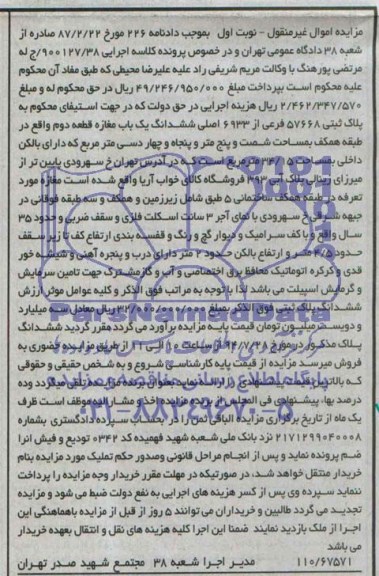 مزایده اموال غیرمنقول - نوبت اول بموجب دادنامه ۲۲۶ مورخ ۸۷/۲/۲۲ صادره از
شعبه ۳۸ دادگاه عمومی تهران و در خصوص پرونده کلاسه اجرایی ۹۰۰۱۲۷/۳۸/ج له
مرتضی پورهنگ با وکالت مریم شریفی راد علیه علیرضا محیطی که طبق مفاد آن محکوم
علیه محکوم است بپرداخت مبلغ ۴۹/۲۴۶/۹۵۰/۰۰۰ ریال در حق محکوم له و مبلغ
۲/۴۶۲/۳۴۷/۵۷۰ ریال هزینه اجرایی در حق دولت که در جهت استیفای محکوم به
پلاک ثبتی ۵۷۶۶۸ فرعی از ۶۹۳۳ اصلی ششدانگ یک باب مغازه قطعه دوم واقع در
طبقه همکف بمساحت شصت و پنج متر و پنجاه و چهار دسی متر مربع که دارای بالکن
داخلی بمساحت ۳۴/۱۵ مترمربع است که در آدرس تهران خ سهروردی پایین تر از
میرزای زینالی پلاک آبی ۳۹۳ فروشگاه کالای خواب آریا واقع شده است مغازه مورد
تعرفه در طبقه همکف ساختمانی ۵ طبق شامل زیرزمین و همکف و سه طبقه فوقانی در
جبهه شرقی خ سهروردی با نمای آجر ۳ سانت اسکلت فلزی و سقف ضربی و حدود ۳۵
سال واقع و با کف سرامیک و دیوار گچ و رنگ و قفسه بندی ارتفاع کف تا زیر سقف
حدود ۴/۵ متر و ارتفاع بالکن حدود ۲ متر دارای درب و پنجره آهنی و شیشه خور
قدی و کرکره اتوماتیک محافظ برق اختصاصی و آب و گاز مشترک جهت تامین سرمایش
و گرمایش اسپیلت می باشد لذا با توجه به مراتب فوق الذکر و کلیه عوامل موثر ارزش
ششدانگ پلاک ثبتی فوق الذکر بمبلغ ۳۲/۲۰۰/۰۰۰/۰۰۰ ریال معادل سه میلیارد
و دویست میلیون تومان قیمت پایه مزایده برآورد می گردد مقرر گردید ششدانگ
پلاک مذکور در مورخ ۹۴/۷/۲۸ از ساعت ۱۰ الی ۱۲ از طریق مزایده حضوری به
فروش میرسد مزایده از قیمت پایه کارشناسی شروع و به شخص حقیقی و حقوقی
که بالاترین قیمت پیشنهادی را ارائه نماید بعنوان برنده مزایده تلقی میگردد وده
درصد بها، پیشنهادی فی المجلس از برنده مزایده اخذ و مشارالیه موظف است ظرف
یک ماه از تاریخ برگزاری مزایده الباقی ثمن را در بحساب سپرده دادگستری بشماره
۲۱۷۱۲۹۹۰۴۰۰۰۸ نزد بانک ملی شعبه شهید فهمیده کد ۰۳۴۲ تودیع و فیش انرا
ضم پرونده نماید و پس از انجام مراحل قانونی وصدور حکم تملیک مورد مزایده بنام
خریدار منتقل خواهد شد، در صورتیکه در مهلت مقرر خریدار وجه مزایده را پرداخت
ننماید سپرده وی پس از کسر هزینه های اجرایی به نفع دولت ضبط می شود و مزایده
تجدید می گردد طالبین و خریداران می توانند ۵ روز از قبل از مزایده باهماهنگی این
اجرا از ملک بازدید نمایند ضمنا این اجرا کلیه هزینه های نقل و انتقال بعهده خریدار
می باشد
۱۱۰/۶۷۵۷۱ مدیر اجرا شعبه ۳۸ مجتمع شهید صدر تهران
۰۲۱-۸۸۳۴۹۶۷۰-۵